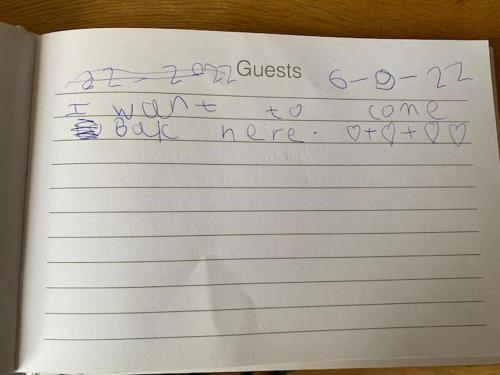 22-2022 Guests 6-9-22
I want to cone
Bak here. ♡+♡+♡♡